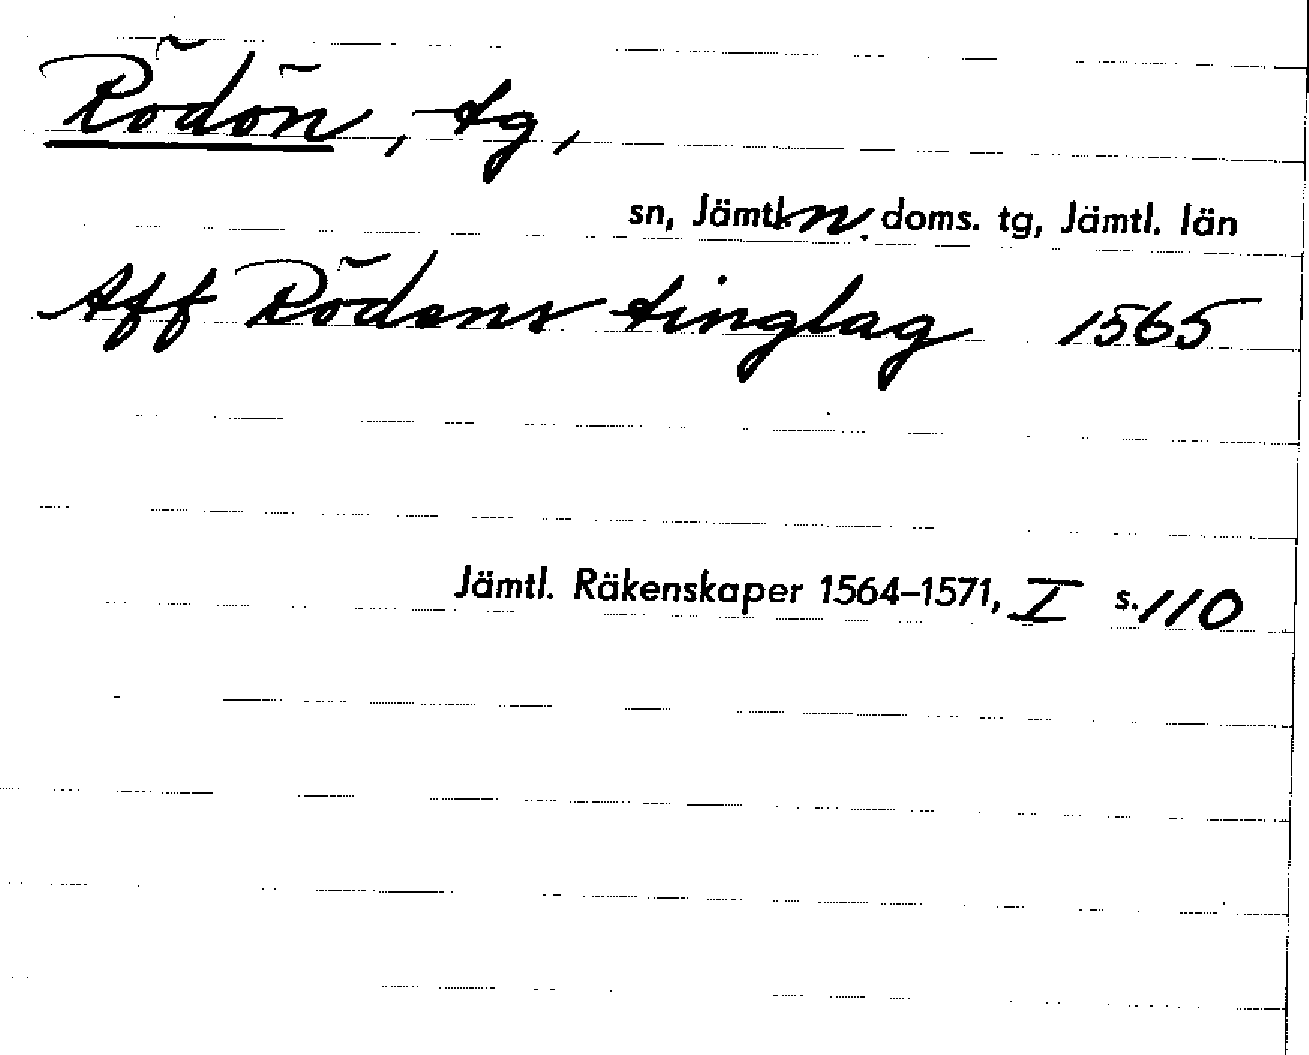 Rödön, tg,
sn, Jämtl. n. doms. tg, Jämtl. län
Aff Rödens tinglag 1565
Jämtl. Räkenskaper 1564–1571, I s. 110